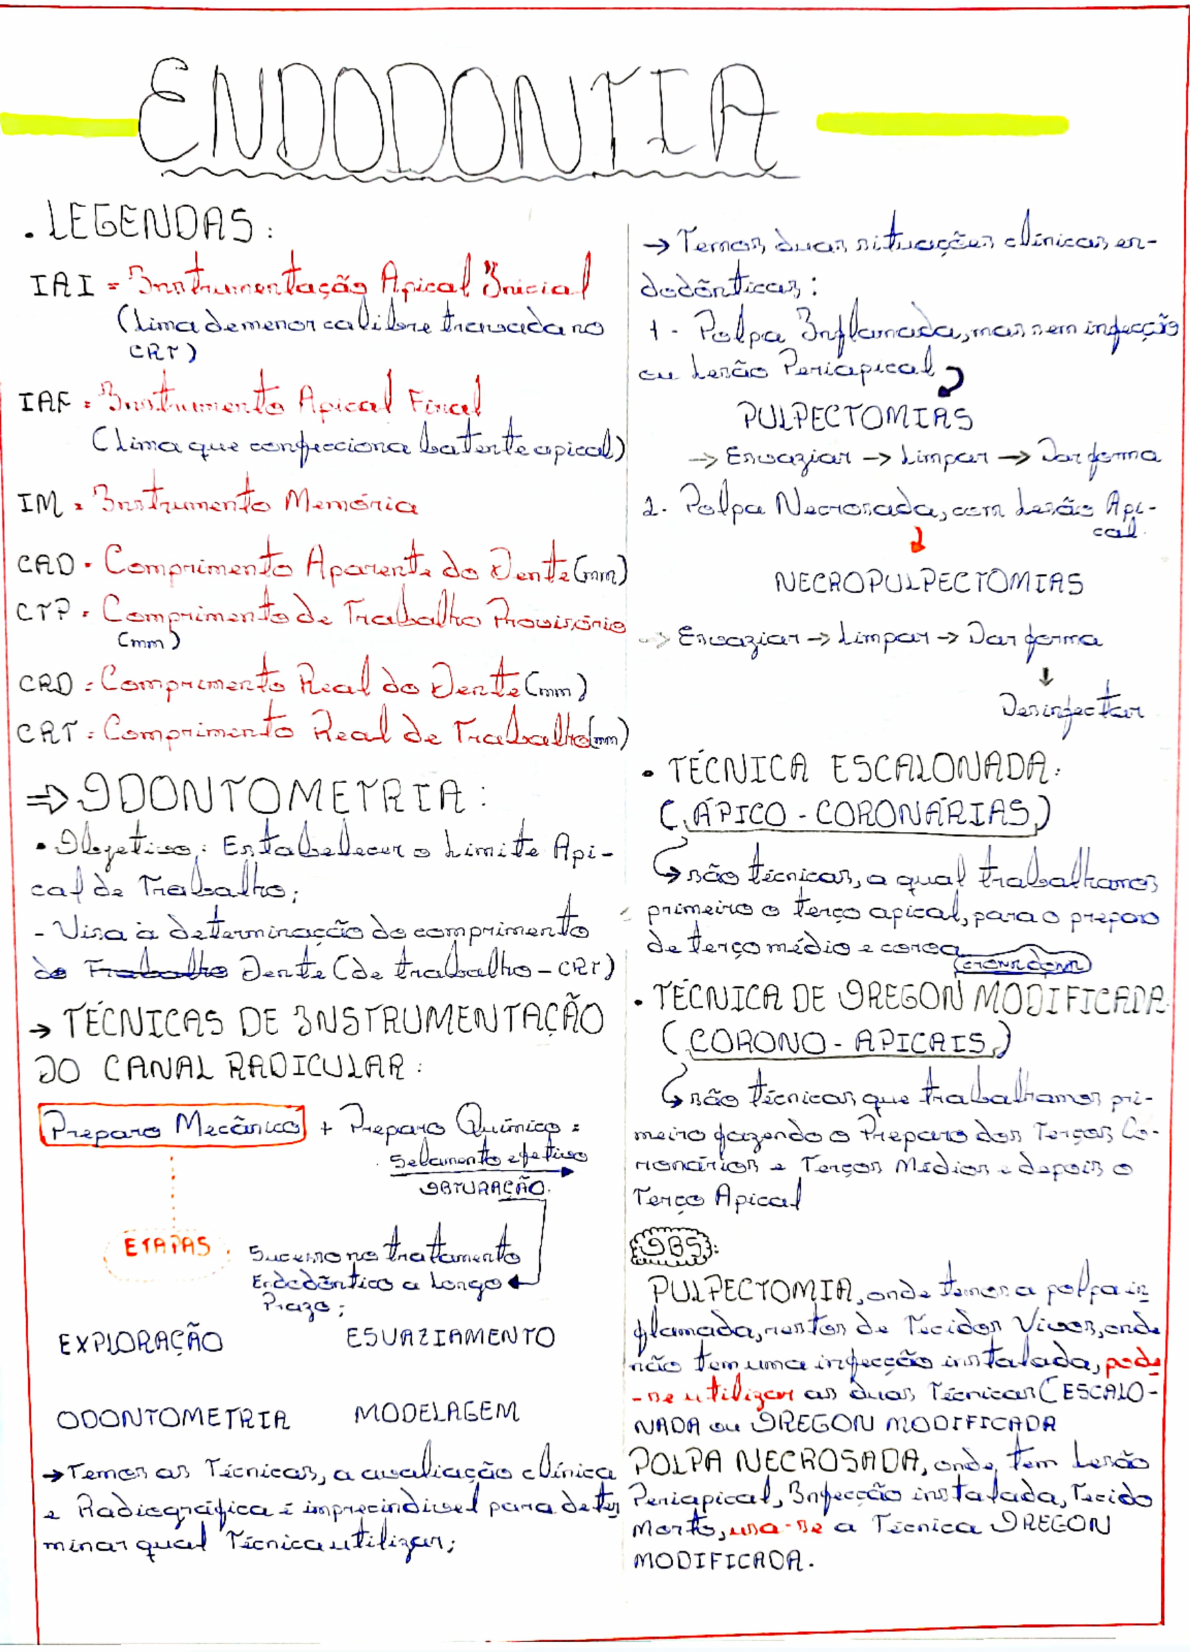 ENDODONTIA
. LEGENDAS:
IAI = Instrumentação Apical Inicial
(Lima de menor calibre travada no
CRT)
IAF = Instrumento Apical Final
(Lima que confecciona batente apical)
IM = Instrumento Memória
CAD = Comprimento Aparente do Dente (mm)
CTP = Comprimento de Trabalho Provisório
(mm)
CRD = Comprimento Real do Dente (mm)
CRT = Comprimento Real de Trabalho (mm)
⇒ ODONTOMETRIA:
• Objetivo: Estabelecer o Limite Api-
cal de Trabalho;
- Visa à determinação do comprimento
do Trabalho Dente (de trabalho - CRT)
→ TÉCNICAS DE INSTRUMENTAÇÃO
DO CANAL RADICULAR:
Preparo Mecânico + Preparo Químico =
Selamento efetivo
OBTURAÇÃO.
ETAPAS.
Sucesso no tratamento
Endodôntico a Longo
Prazo;
EXPLORAÇÃO ESVAZIAMENTO
ODONTOMETRIA MODELAGEM
→ Temos as Técnicas, a avaliação clínica
e Radiográfica é imprecindivel para deter
minar qual Técnica utilizar;
→ Temos duas situações clínicas en-
dodônticas:
1 - Polpa Inflamada, mas sem infecção
ou Lesão Periapical
PULPECTOMIAS
→ Esvaziar → Limpar → Dar forma
2. Polpa Necrosada, com Lesão Api-
cal.
NECROPULPECTOMIAS
→ Esvaziar → Limpar → Dar forma
↓
Desinfectar
• TÉCNICA ESCALONADA:
(ÁPICO - CORONÁRIAS)
↳ são técnicas, a qual trabalhamos
primeiro o terço apical, para o preparo
de terço médio e coroa
CROWN DOWN
• TÉCNICA DE OREGON MODIFICADA
(CORONO - APICAIS)
↳ são técnicas que trabalhamos pri-
meiro fazendo o Preparo dos Terços Co-
ronários e Terços Médios e depois o
Terço Apical
OBS:
PULPECTOMIA, onde temos a polpa in
flamada, restos de Tecidos Vivos, onde
não tem uma infecção instalada, pode
-se utilizar as duas Técnicas (ESCALO-
NADA ou OREGON MODIFICADA
POLPA NECROSADA, onde, tem Lesão
Periapical, Infecção instalada, Tecido
Morto, usa-se a Técnica OREGON
MODIFICADA.